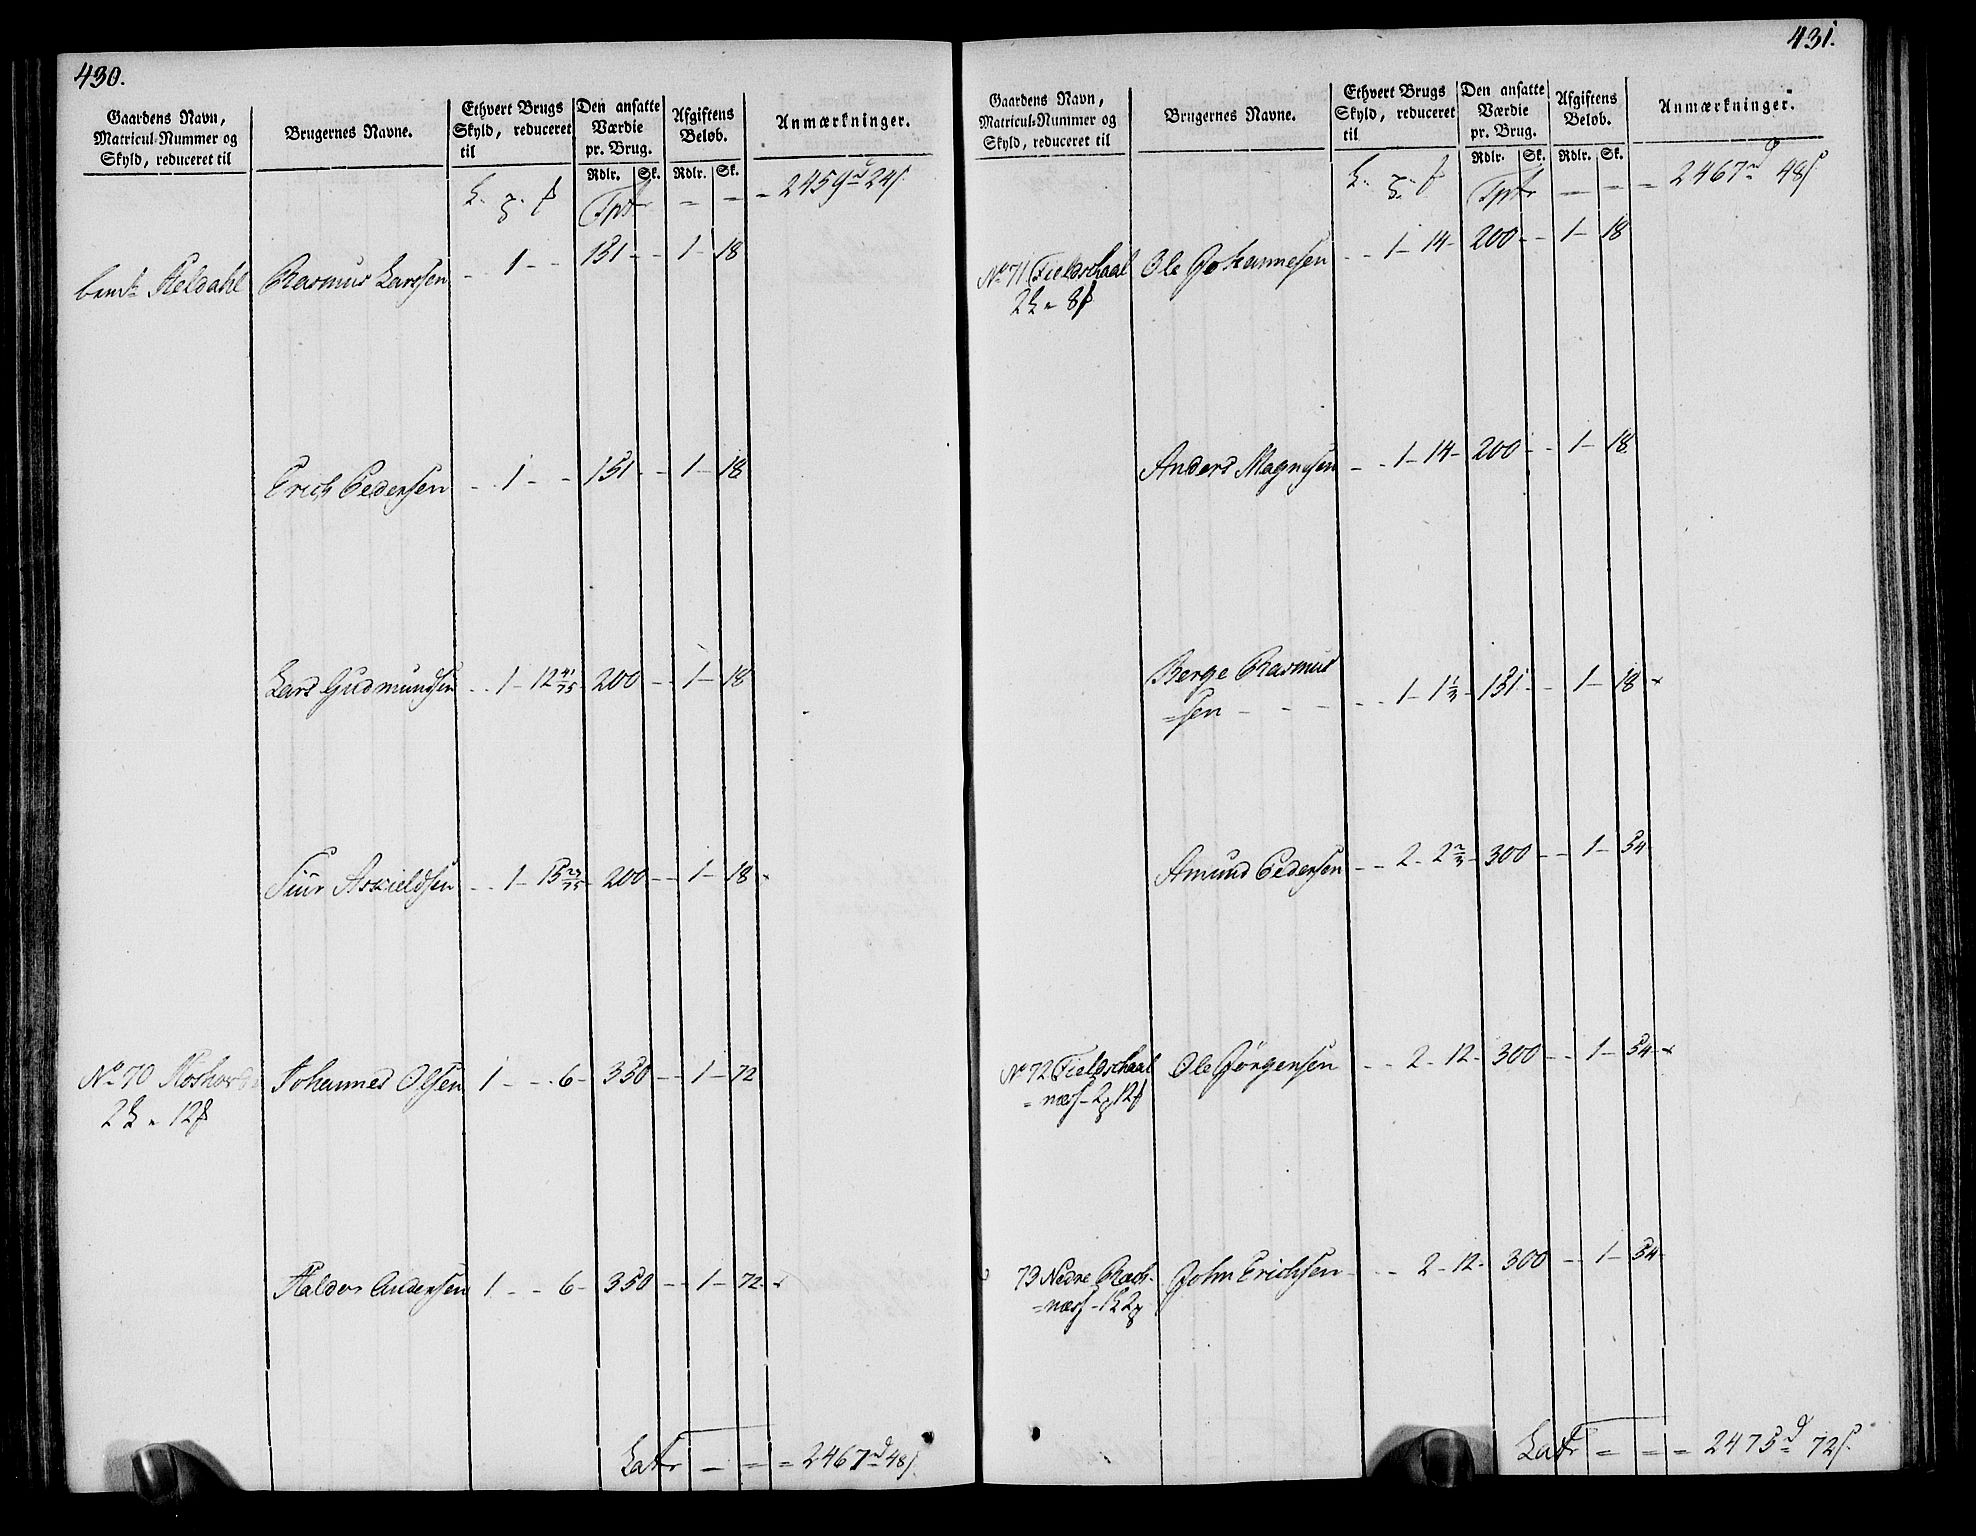 430.
Gaardens Navn,
Matricul-Nummer og
Skyld, reduceret til
Brugernes Navne.
Ethvert Brugs
Skyld, reduceret
til
Den ansatte
Værdie
pr. Brug.
Afgiftens
Beløb.
Anmærkninger.
Rdlr. Sk. Rdlr. Sk.
Tptr - - - 2459 24
Heldahl Rasmus Larssen - - 1 - - 151 - - 1 - 18
Erich Pedersen - - 1 - - 151 - - 1 - 18
Lars Gudmundsen - - 1 - 12 41/75 200 - - 1 - 18
Siur Askieldsen - - 1 - 15 29/75 200 - - 1 - 18
No 70 Johannes Olsen 1 - - 6 - 350 - - 1 - 72
2 - 12
Haldor Andersen 1 - - 6 - 350 - - 1 - 72
Latr - - - 2467 48
431.
Gaardens Navn,
Matricul-Nummer og
Skyld, reduceret til
Brugernes Navne.
Ethvert Brugs
Skyld, reduceret
til
Den ansatte
Værdie
pr. Brug.
Afgiftens
Beløb.
Anmærkninger.
Rdlr. Sk. Rdlr. Sk.
Tptr - - - 2467 48
No 71 Fieldschaal Ole Johannesen - - 1 - 14 - 200 - - 1 - 18
2 - 8
Anders Magnesen - - 1 - 14 - 200 - - 1 - 18
Berge Rasmus
=sen - - - - - 1 - 1 1/3 - 151 - - 1 - 18
Amund Pedersen - - 2 - 2 2/3 - 300 - - 1 - 54
No 72 Fieldschaal Ole Jörgensen - - 2 - 12 - 300 - - 1 - 54
= næss - 2 12
73 Nedre John Erichsen - - 2 - 12 - 300 - - 1 - 54
=næss - 1 2
Latr - - - 2475 72